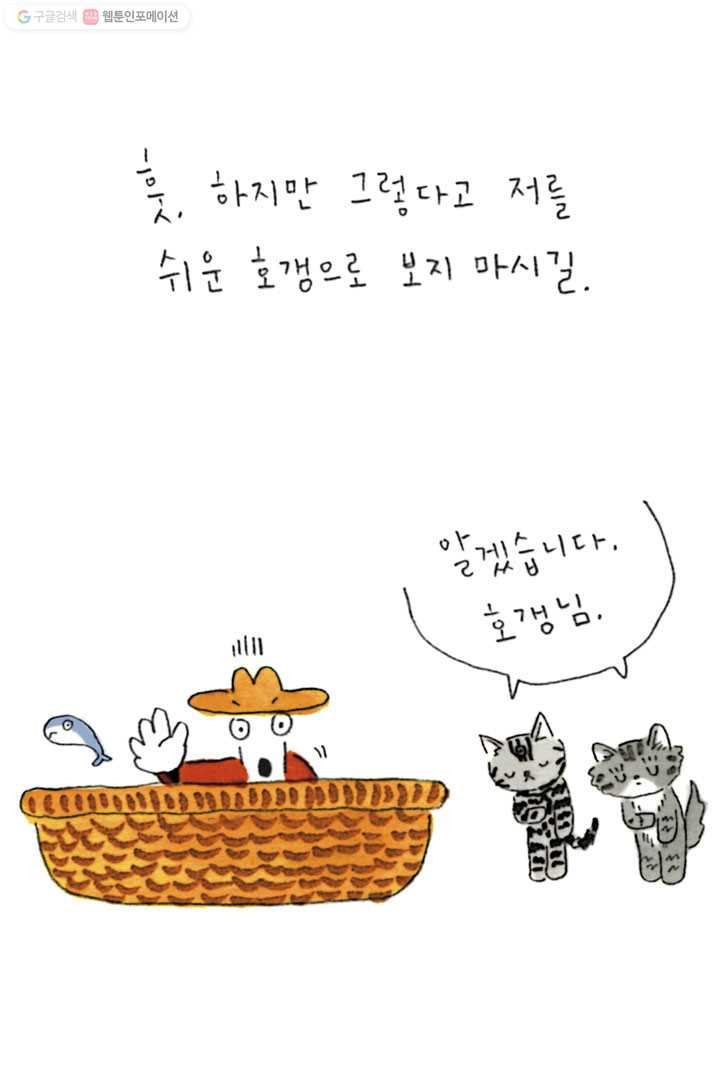 구글검색 웹툰인포메이션
훗. 하지만 그렇다고 저를
쉬운 호갱으로 보지 마시길.
알겠습니다.
호갱님.